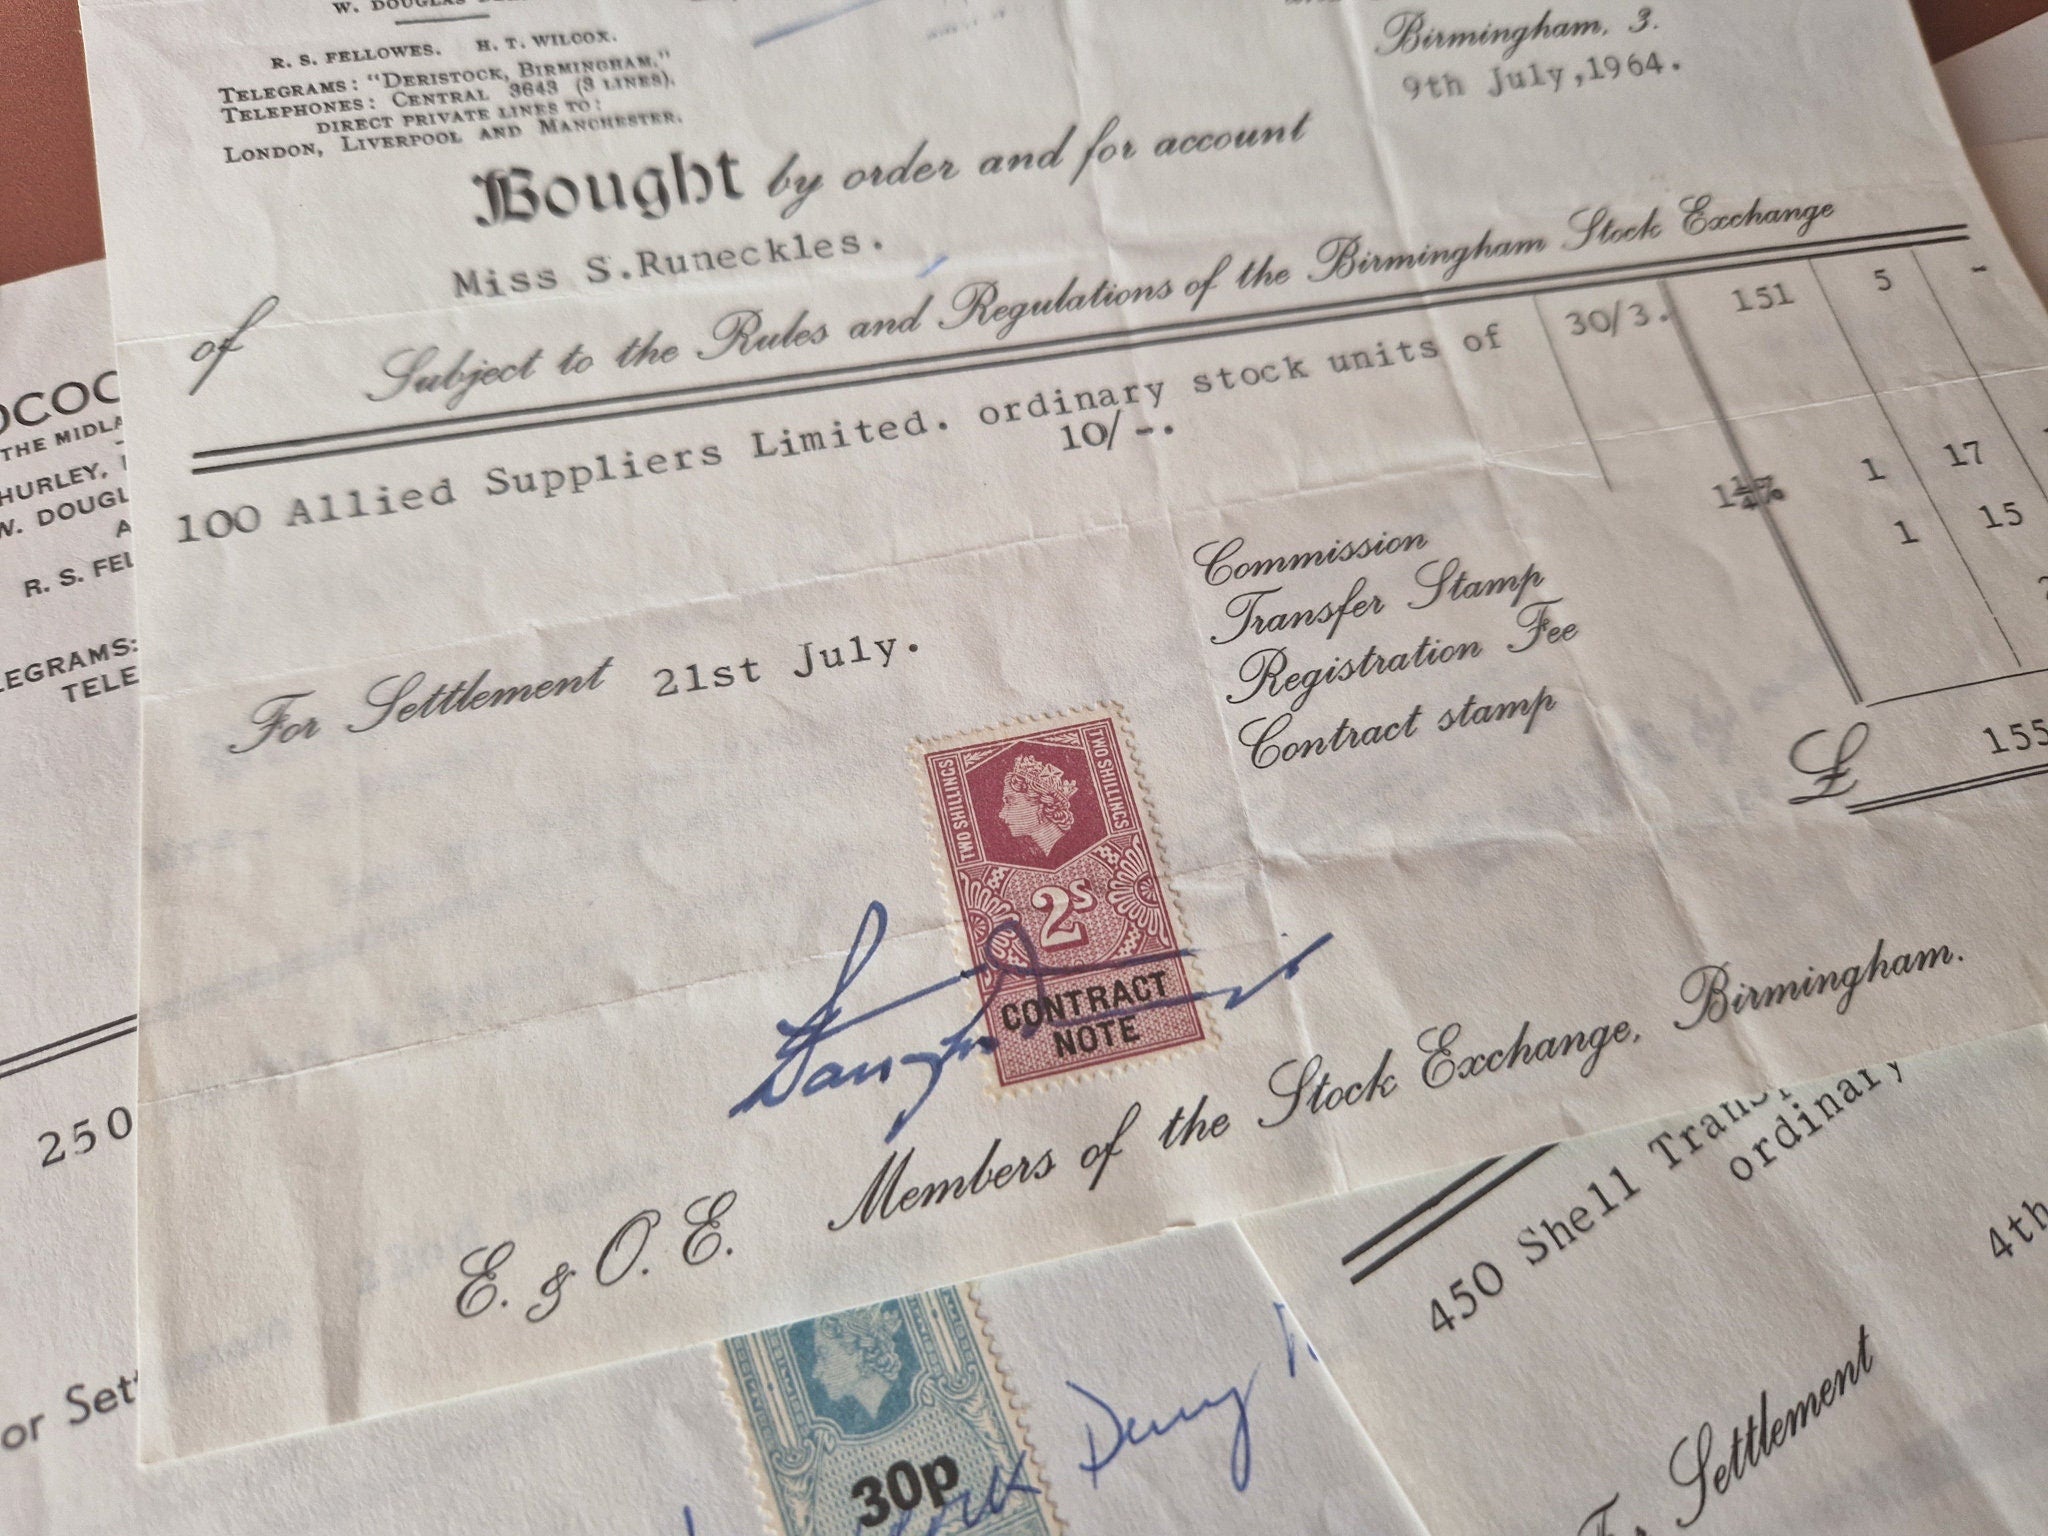 W. DOUGLAS
R. S. FELLOWES. H. T. WILCOX.
TELEGRAMS: "DERISTOCK, BIRMINGHAM."
TELEPHONES: CENTRAL 3643 (3 LINES).
DIRECT PRIVATE LINES TO:
LONDON, LIVERPOOL AND MANCHESTER.
Birmingham, 3.
9th July, 1964.
Bought by order and for account
of Miss S.Runeckles.
Subject to the Rules and Regulations of the Birmingham Stock Exchange
100 Allied Suppliers Limited. ordinary stock units of 30/3. 151 5 -
10/-.
Commission 1 17
Transfer Stamp 1 15
Registration Fee
Contract stamp
£ 155
For Settlement 21st July.
TWO SHILLINGS
TWO SHILLINGS
2s
CONTRACT
NOTE
E. & O. E. Members of the Stock Exchange, Birmingham.
OCOC
THE MIDLA
HURLEY,
W. DOUGL
R. S. FEL
LEGRAMS:
TELE
250
or Set
30p
450 Shell Trans
ordinary
4th
Settlement